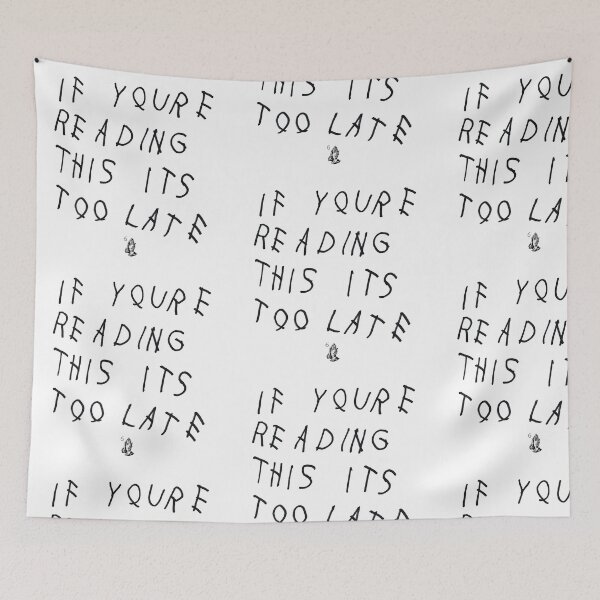 IF YOURE
READING
THIS ITS
TOO LATE
IF YOURE
READING
THIS ITS
TOO LATE
IF YOURE
THIS ITS
TOO LATE
IF YOURE
READING
THIS ITS
TOO LATE
IF YOURE
READING
THIS ITS
TOO LATE
IF YOU
READIN
THIS IT
TOO LA
IF YOU
READIN
THIS IT
TOO LA
IF YOU